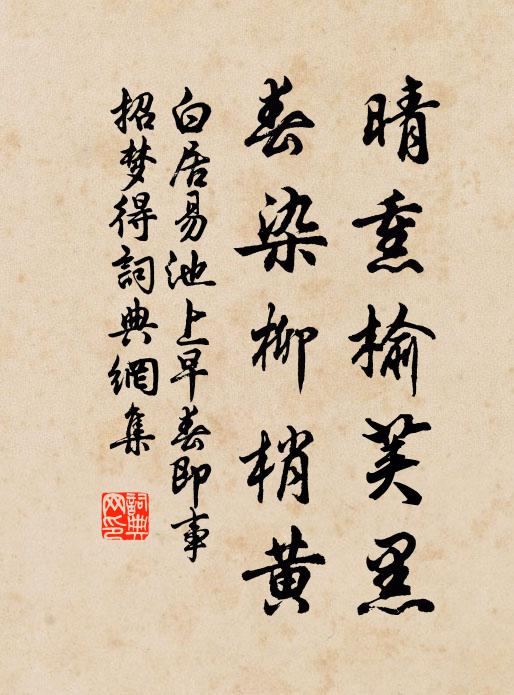 晴熏榆荚黑
春染柳梢黄
白居易池上早春即事
招梦得詞典網集
詞典网印